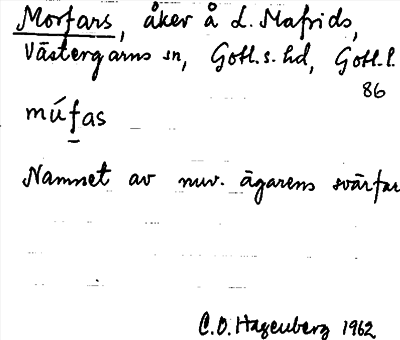 Morfars, åker å L. Mafrids,
Västergarns sn, Gotl. s. hd, Gotl. l.
86
múfas
Namnet av nuv. ägarens svärfar
C.O. Hagenberg 1962